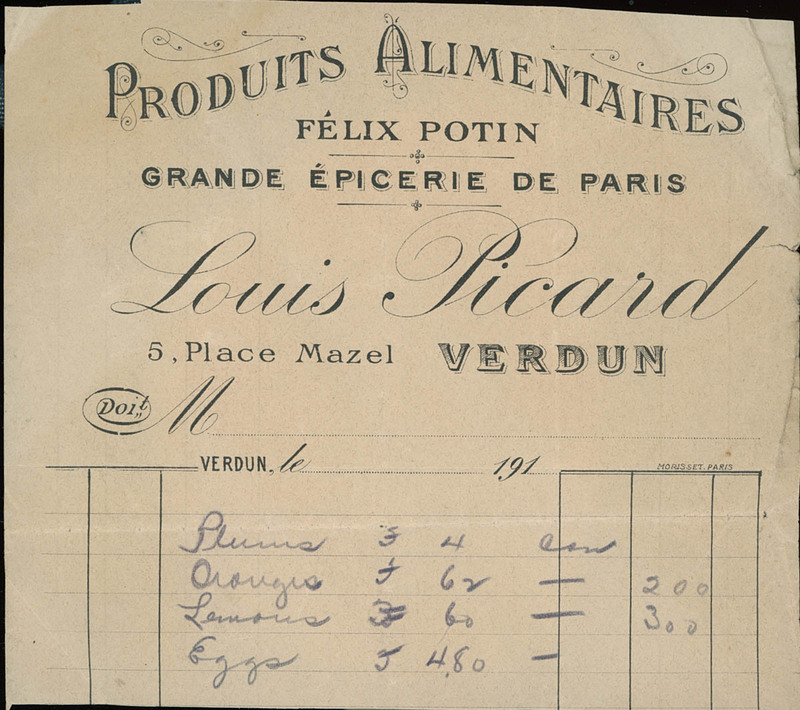 PRODUITS ALIMENTAIRES
FÉLIX POTIN
GRANDE ÉPICERIE DE PARIS
Louis Picard
5, Place Mazel VERDUN
Doit M
VERDUN, le 191
MORISSET. PARIS
Plums 4 can
Oranges 62 — 200
Lemons 60 — 300
Eggs 4.80 —